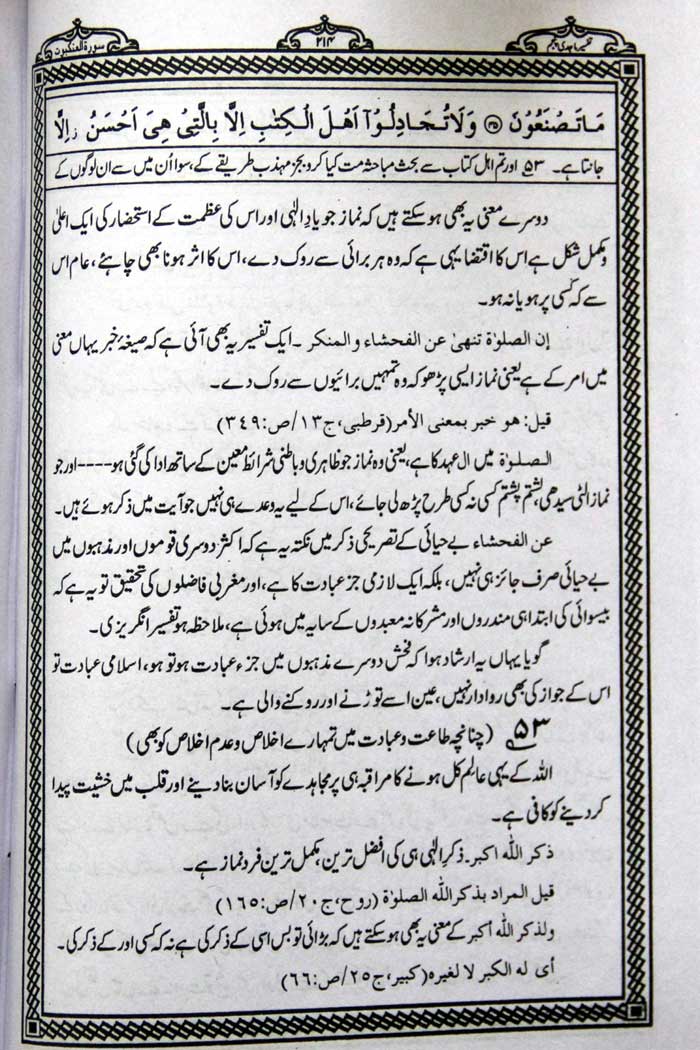 تفسیر ماجدی پنجم
۲۱۴
سورۃ العنکبوت
مَا تَصْنَعُوْنَ ﴿۴۵﴾ وَلَا تُجَادِلُوْٓا اَهْلَ الْكِتٰبِ اِلَّا بِالَّتِيْ هِيَ اَحْسَنُ ۖ اِلَّا
جانتا ہے۔ ۵۳ اور تم اہل کتاب سے بحث مباحثہ مت کیا کرو بجز مہذب طریقے کے، سوا اُن میں سے ان لوگوں کے
دوسرے معنی یہ بھی ہو سکتے ہیں کہ نماز جو یادِ الٰہی اور اس کی عظمت کے استحضار کی ایک اعلیٰ
و مکمل شکل ہے اس کا اقتضا یہی ہے کہ وہ ہر برائی سے روک دے، اس کا اثر ہونا بھی چاہئے، عام اس
سے کہ کسی پر ہو یا نہ ہو۔
إن الصلوٰة تنهىٰ عن الفحشاء و المنكر ۔ ایک تفسیر یہ بھی آئی ہے کہ صیغۂ خبر یہاں معنی
میں امر کے ہے یعنی نماز ایسی پڑھو کہ وہ تمہیں برائیوں سے روک دے۔
قيل: هو خبر بمعنى الأمر (قرطبی، ج ۱۳/ص: ۳۴۹)
الصلوٰة میں ال عہد کا ہے، یعنی وہ نماز جو ظاہری و باطنی شرائط معین کے ساتھ ادا کی گئی ہو----اور جو
نماز الٹی سیدھی، پشتم پشتم کسی نہ کسی طرح پڑھ لی جائے، اس کے لیے یہ وعدے ہی نہیں جو آیت میں ذکر ہوئے ہیں۔
عن الفحشاء بے حیائی کے تصریحی ذکر میں نکتہ یہ ہے کہ اکثر دوسری قوموں اور مذہبوں میں
بے حیائی صرف جائز ہی نہیں، بلکہ ایک لازمی جز عبادت کا ہے، اور مغربی فاضلوں کی تحقیق تو یہ ہے کہ
بیسوائی کی ابتدا ہی مندروں اور مشرکانہ معبدوں کے سایہ میں ہوئی ہے، ملاحظہ ہو تفسیر انگریزی۔
گویا یہاں یہ ارشاد ہوا کہ فحش دوسرے مذہبوں میں جزء عبادت ہو تو ہو، اسلامی عبادت تو
اس کے جواز کی بھی روادار نہیں، عین اسے توڑنے اور روکنے والی ہے۔
۵۳ (چنانچہ طاعت و عبادت میں تمہارے اخلاص و عدم اخلاص کو بھی)
اللہ کے یہی عالمِ کل ہونے کا مراقبہ ہی ہر مجاہدے کو آسان بنا دینے اور قلب میں خشیت پیدا
کر دینے کو کافی ہے۔
ذكر الله اكبر۔ ذکرِ الٰہی ہی کی افضل ترین، مکمل ترین فرد نماز ہے۔
قيل المراد بذكر الله الصلوٰة (روح، ج ۲۰/ص: ۱۶۵)
ولذكر الله أكبر کے معنی یہ بھی ہو سکتے ہیں کہ بڑائی تو بس اسی کے ذکر کی ہے نہ کہ کسی اور کے ذکر کی۔
أى له الكبر لا لغيره (كبير، ج ۲۵/ص: ۶۶)